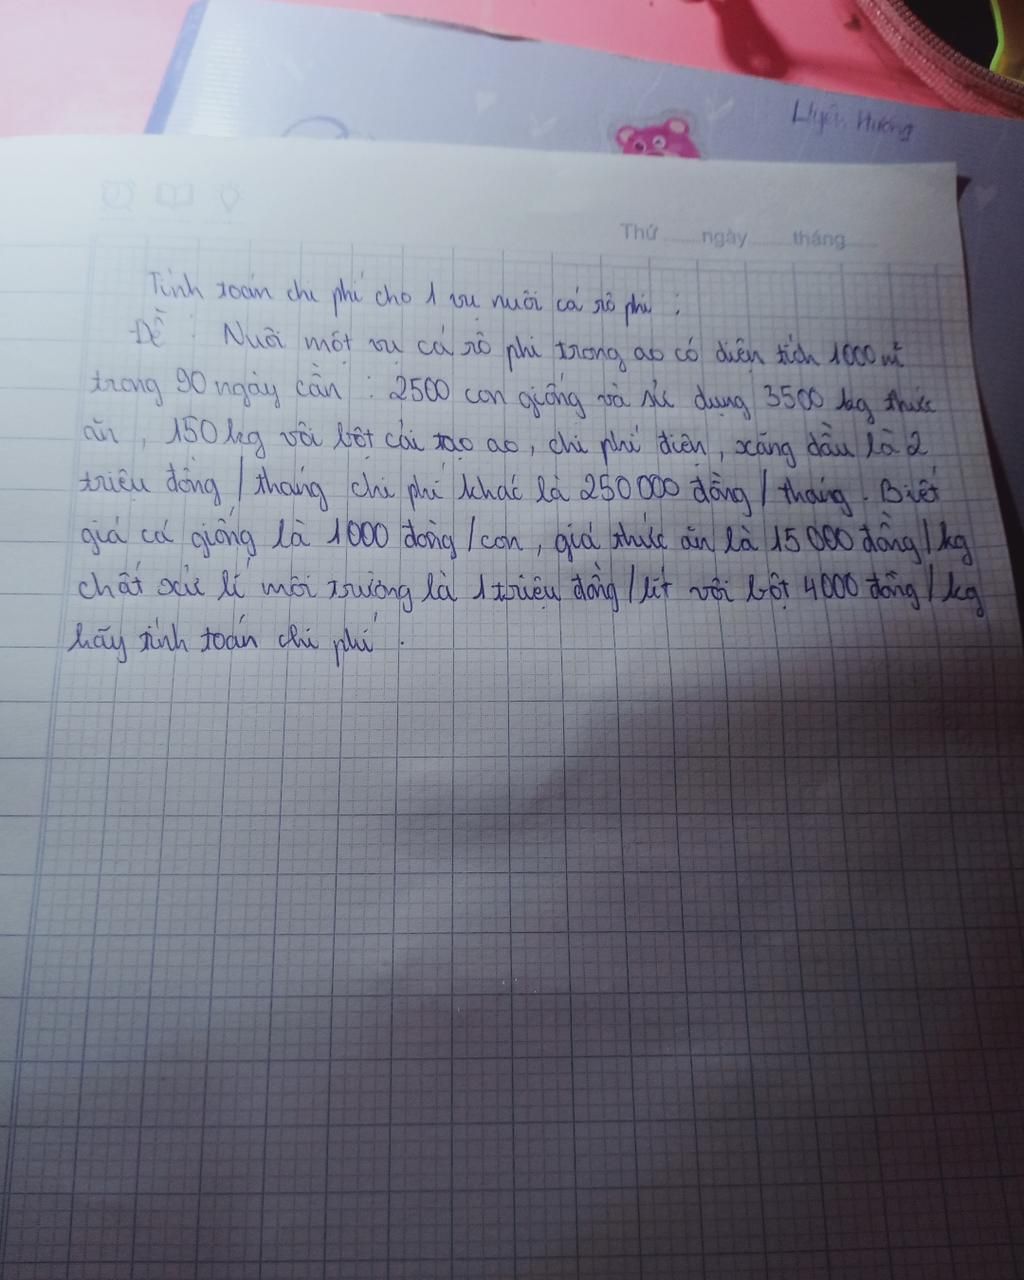 Huyền Hương
Thứ ...... ngày ...... tháng ......
Tính toán chi phí cho 1 vụ nuôi cá rô phi :
Đề : Nuôi một vụ cá rô phi trong ao có diện tích 1000 m²
trong 90 ngày cần : 2500 con giống và sử dụng 3500 kg thức
ăn , 150 kg vôi bột cải tạo ao , chi phí điện , xăng dầu là 2
triệu đồng / tháng chi phí khác là 250 000 đồng / tháng . Biết
giá cá giống là 1000 đồng / con , giá thức ăn là 15 000 đồng / kg
chất xử lí môi trường là 1 triệu đồng / lít vôi bột 4000 đồng / kg
hãy tính toán chi phí .